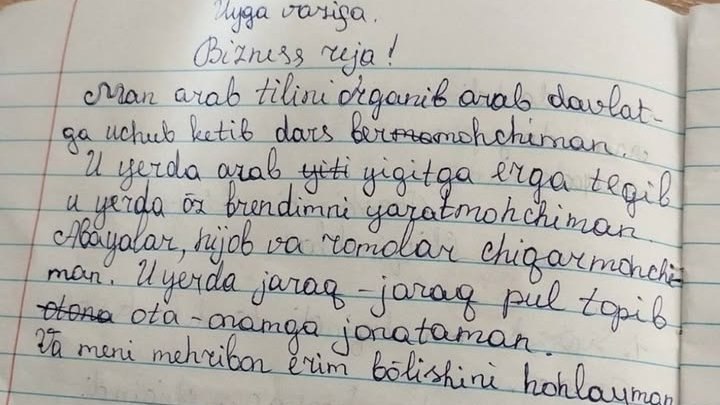 Uyga vazifa.
Bizness reja!
Man arab tilini òrganib arab davlat-
ga uchub ketib dars bermohchiman.
U yerda arab yigitga erga tegib
u yerda òz brendimni yaratmohchiman.
Abayalar, hijob va romolar chiqarmohchi-
man. U yerda jaraq-jaraq pul topib
ota-onamga jonataman.
Va meni mehribon erim bòlishini hohlayman